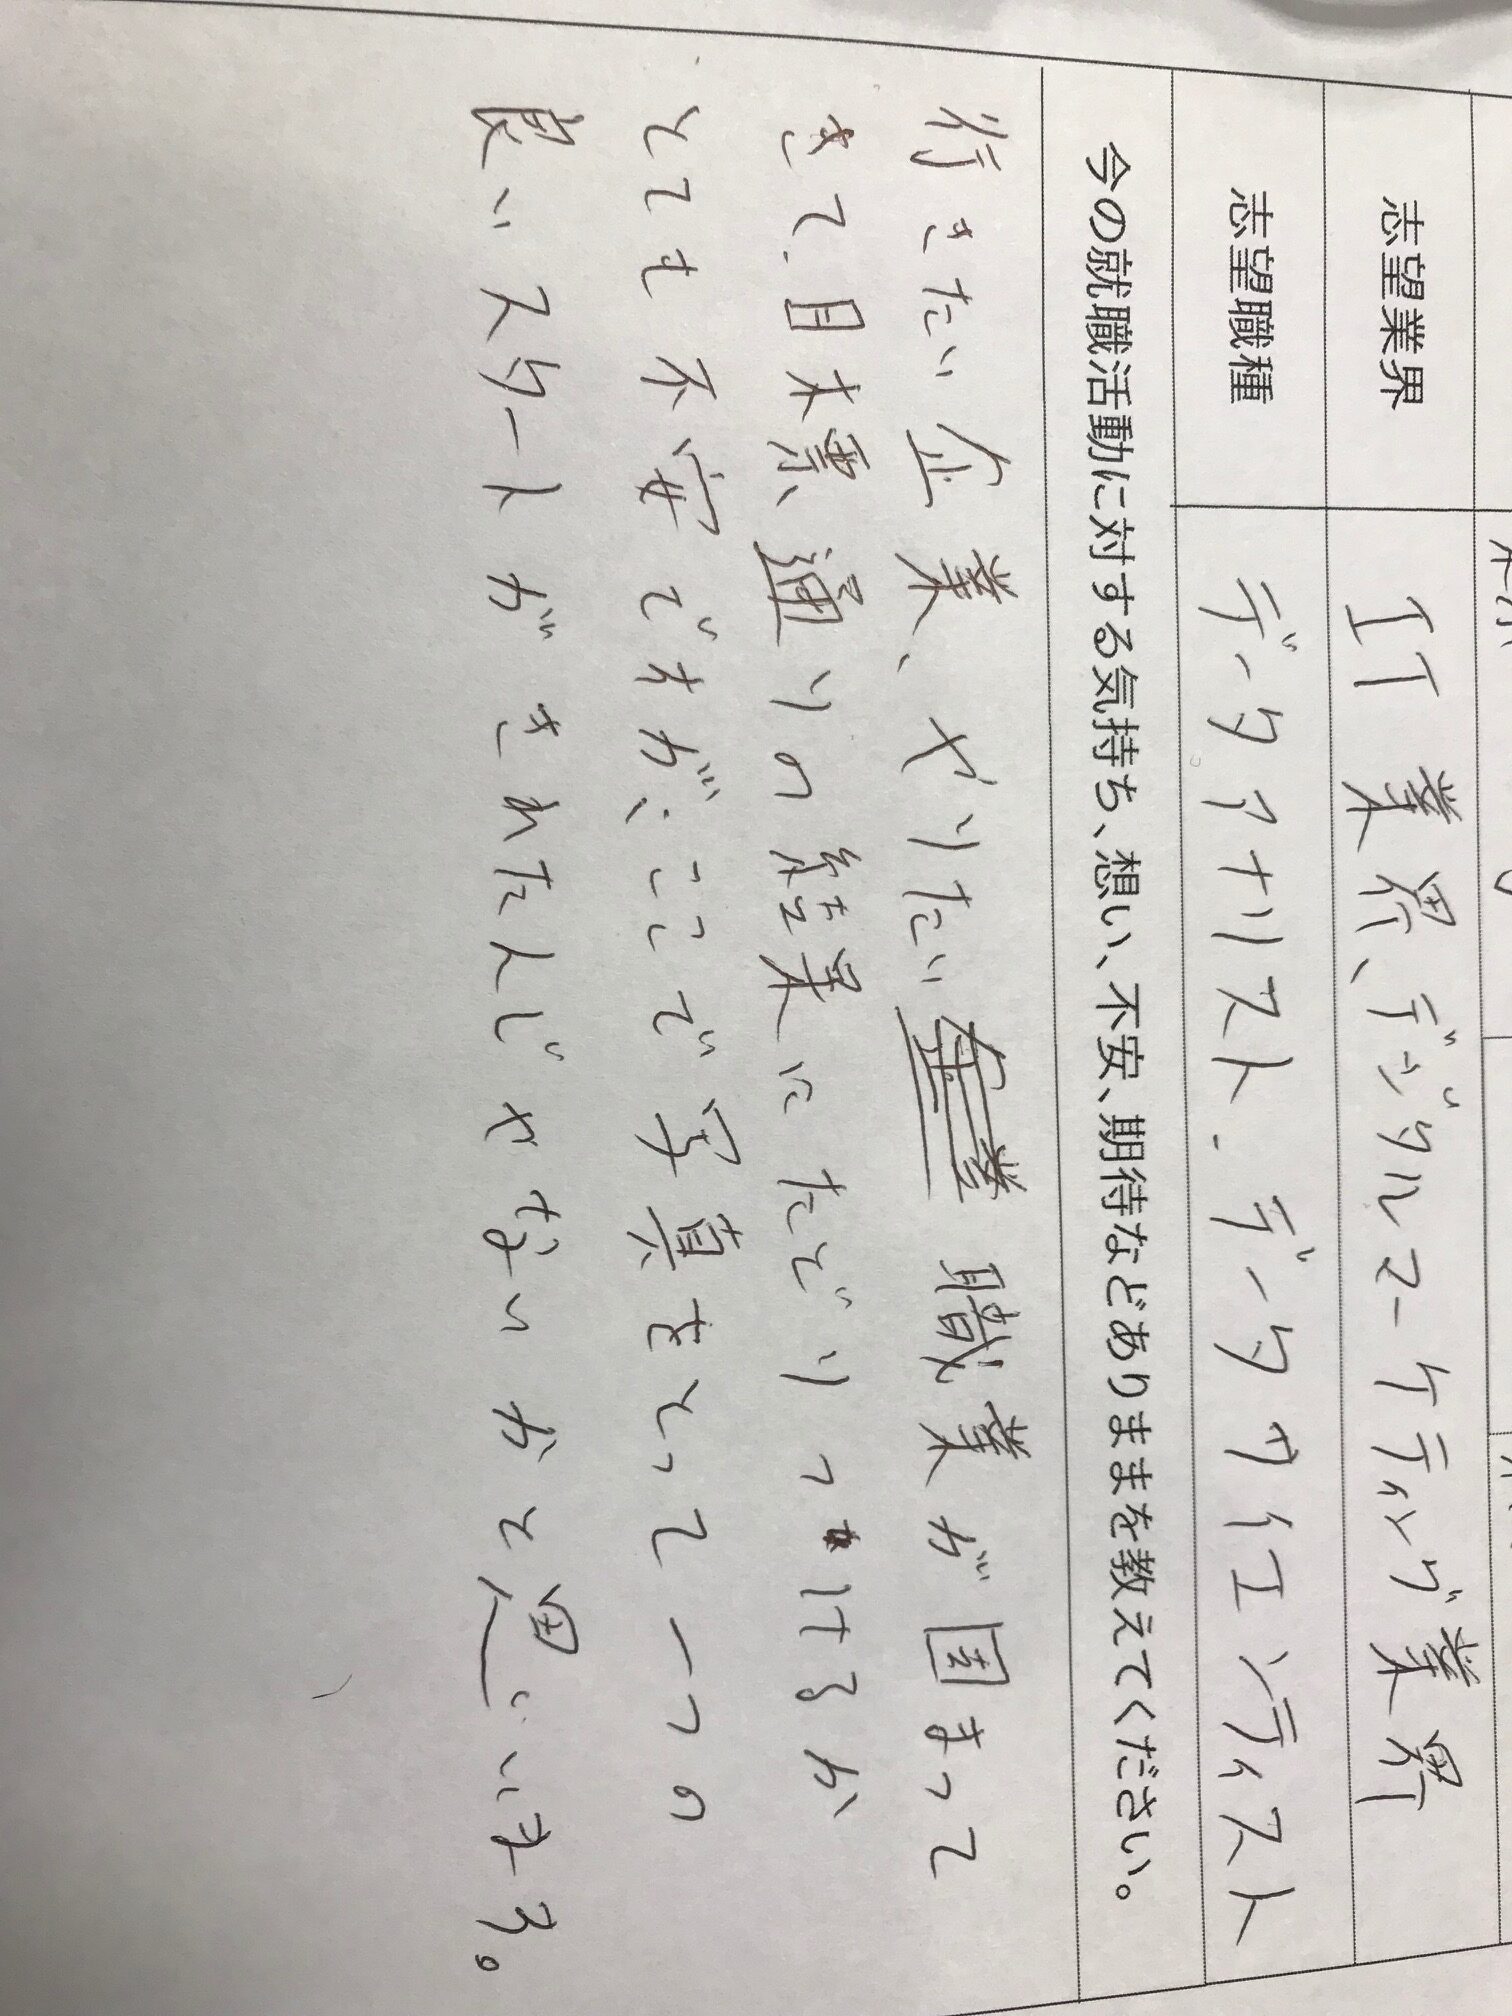 志望業界 IT業界、デジタルマーケティング業界
志望職種 データアナリスト．データサイエンティスト
今の就職活動に対する気持ち、想い、不安、期待などありままを教えてください。
行きたい企業、やりたい職業が固まって
きて、目標通りの結果にたどりつけるか
とても不安ですが、ここで写真をとって一つの
良いスタートがきれたんじゃないかと思います。